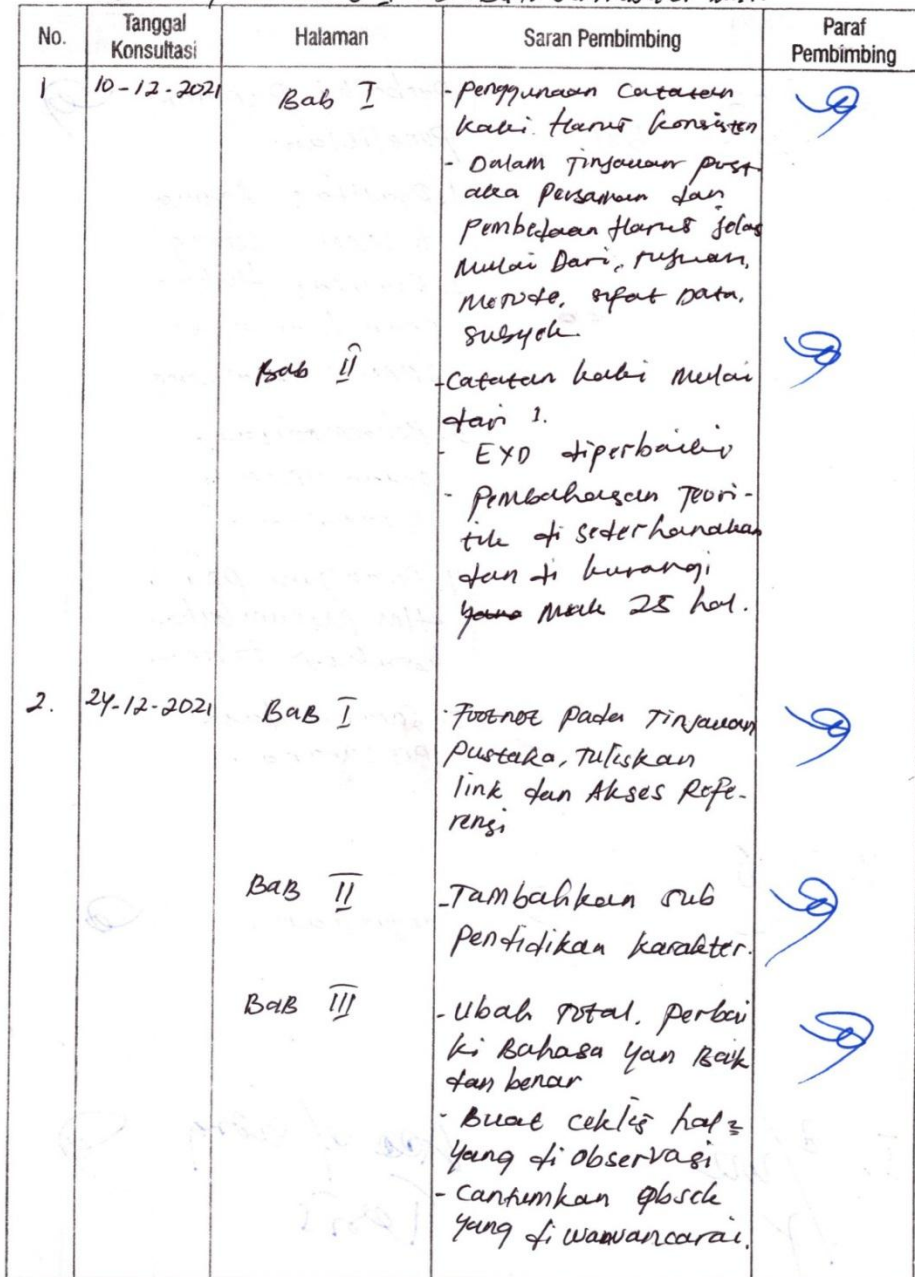 No.
Tanggal
Konsultasi
Halaman
Saran Pembimbing
Paraf
Pembimbing
1
10-12-2021
Bab I
- Penggunaan Catatan
kaki Harus konsisten
- Dalam Tinjauan pust
aka Persamaan dan
Pembedaan Harus jelas
Mulai Dari, tujuan,
Metode, sifat Data,
subyek.
Bab II
- Catatan kaki Mulai
dari 1.
- EYD diperbaiki
- Pembahasan Teori-
tik di sederhanakan
dan di kurangi
Mak 25 hal.
2.
24-12-2021
BaB I
- Footnot pada Tinjauan
Pustaka, Tuliskan
link dan Akses Refe-
rensi
BaB II
- Tambahkan sub
Pendidikan karakter.
BaB III
- Ubah total. Perbai
ki Bahasa yan Baik
dan benar
- Buat ceklis hal2
yang di observasi
- Cantumkan
yang di wawancarai.